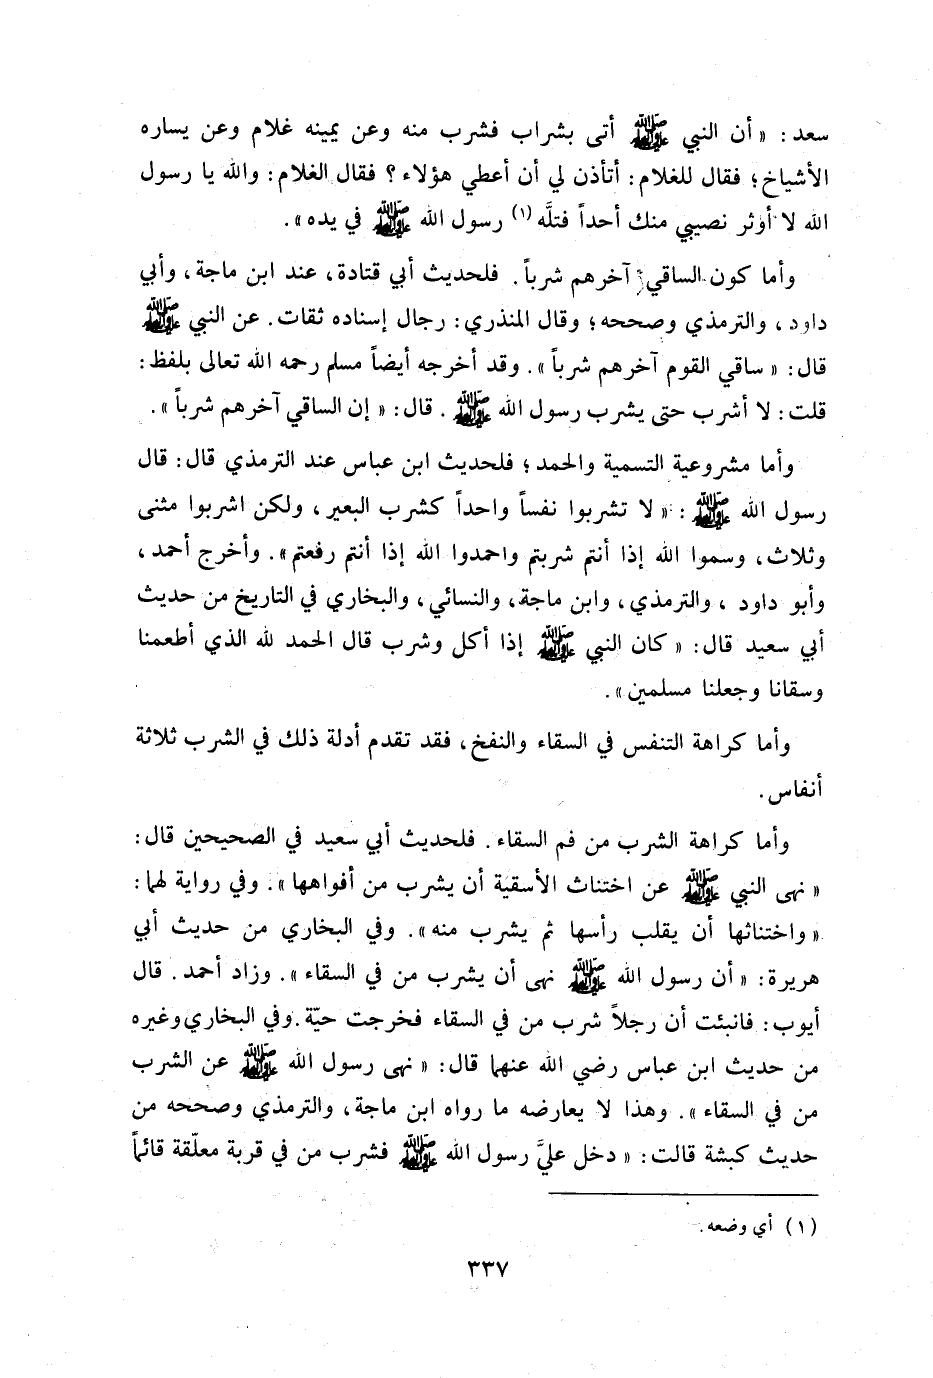 سعد : « أن النبي ﷺ أتى بشراب فشرب منه وعن يمينه غلام وعن يساره
الأشياخ؛ فقال للغلام: أتأذن لي أن أعطي هؤلاء ؟ فقال الغلام: والله يا رسول
الله لا أوثر نصيبي منك أحداً فتلَّه (١) رسول الله ﷺ في يده ».
وأما كون الساقي آخرهم شرباً . فلحديث أبي قتادة، عند ابن ماجة، وأبي
داود، والترمذي وصححه؛ وقال المنذري: رجال إسناده ثقات. عن النبي ﷺ
قال: « ساقي القوم آخرهم شرباً ». وقد أخرجه أيضاً مسلم رحمه الله تعالى بلفظ:
قلت: لا أشرب حتى يشرب رسول الله ﷺ . قال: « إن الساقي آخرهم شرباً ».
وأما مشروعية التسمية والحمد؛ فلحديث ابن عباس عند الترمذي قال: قال
رسول الله ﷺ : « لا تشربوا نفساً واحداً كشرب البعير، ولكن اشربوا مثنى
وثلاث، وسموا الله إذا أنتم شربتم واحمدوا الله إذا أنتم رفعتم ». وأخرج أحمد،
وأبو داود ، والترمذي، وابن ماجة، والنسائي، والبخاري في التاريخ من حديث
أبي سعيد قال: « كان النبي ﷺ إذا أكل وشرب قال الحمد لله الذي أطعمنا
وسقانا وجعلنا مسلمين ».
وأما كراهة التنفس في السقاء والنفخ، فقد تقدم أدلة ذلك في الشرب ثلاثة
أنفاس.
وأما كراهة الشرب من فم السقاء. فلحديث أبي سعيد في الصحيحين قال:
« نهى النبي ﷺ عن اختناث الأسقية أن يشرب من أفواهها ». وفي رواية لهما:
« واختناثها أن يقلب رأسها ثم يشرب منه ». وفي البخاري من حديث أبي
هريرة: « أن رسول الله ﷺ نهى أن يشرب من في السقاء ». وزاد أحمد. قال
أيوب: فانبئت أن رجلاً شرب من في السقاء فخرجت حيّة. وفي البخاري وغيره
من حديث ابن عباس رضي الله عنهما قال: « نهى رسول الله ﷺ عن الشرب
من في السقاء ». وهذا لا يعارضه ما رواه ابن ماجة، والترمذي وصححه من
حديث كبشة قالت: « دخل عليَّ رسول الله ﷺ فشرب من في قربة معلّقة قائماً
(١) أي وضعه.
٣٣٧